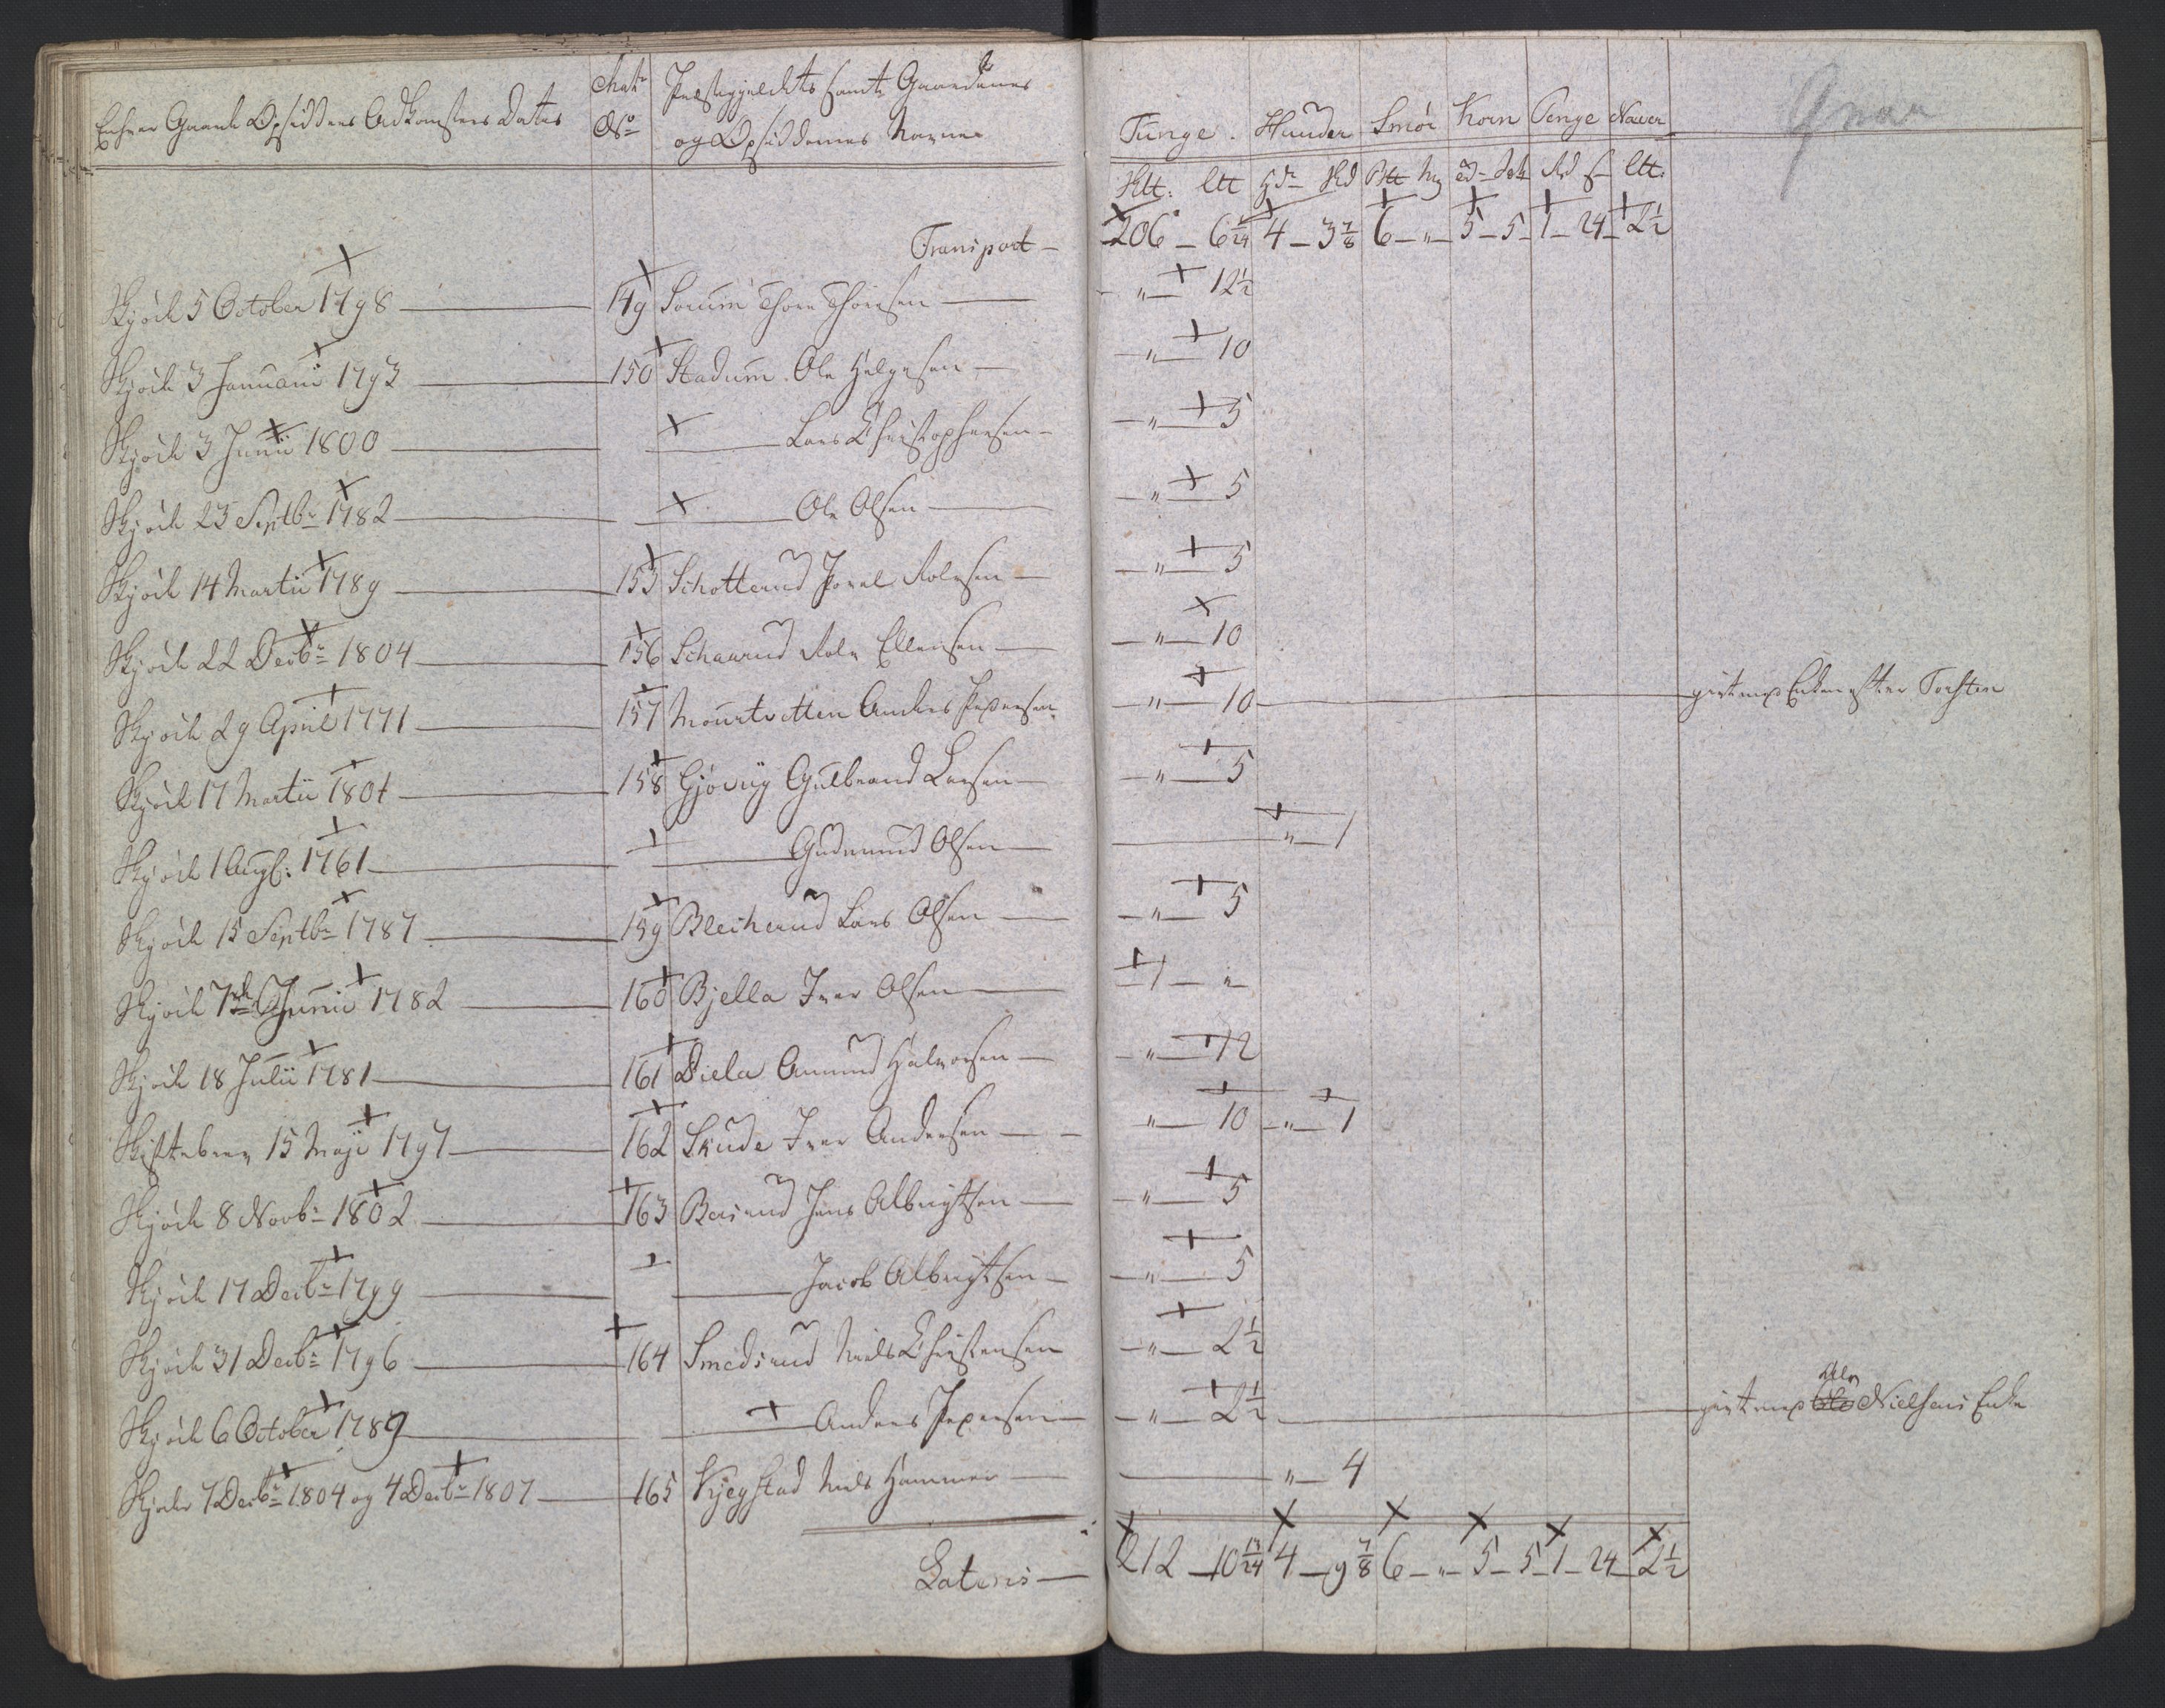 Enhver Gaards Opsidders Adkomsters Datis
Matr No
Præstegjeldets samt Gaardenes
og Opsiddernes Navne
Tunge. Huuder Smør Korn Penge Naver
Gran
Sktt: Ltt Hdr Skd Ltt.
Transport — 206 — 6 1/24 4 — 3 7/8 6 — „ — 5 — 5 — 1 — 24 — 2 1/2
Skjøde 5 October 1798 — 149 Sorum Thore Thoresen — „ — 12 1/2
Skjøde 3 Januarii 1793 — 150 Stadum Ole Helgesen — „ — 10
Skjøde 3 Junii 1800 — Lars Christophersen — „ — 5
Skjøde 23 Septbr 1782 — Ole Olsen — „ — 5
Skjøde 14 Martii 1789 — 153 Schotterud Povel Rolvsen — „ — 5
Skjøde 22 Decbr 1804 — 156 Schaarud Rolv Ellensen — „ — 10
Skjøde 29 April 1771 — 157 Mourtvetten Anders Pedersen — „ — 10 — givt med Enken efter Torsten
Skjøde 17 Martii 1801 — 158 Gjøviig Gulbrand Larsen — „ — 5
Skjøde 1 Augs: 1761 — Gudmund Olsen — „ — 1
Skjøde 15 Septbr 1787 — 159 Bleikerud Lars Olsen — „ — 5
Skjøde 7de Junii 1782 — 160 Bjella Iver Olsen — 1 — „
Skjøde 18 Julii 1781 — 161 Diela Amund Halvorsen — „ — 12
Skiftebrev 15 Maji 1797 — 162 Skude Iver Andersen — „ — 10 — „ — 1
Skjøde 8 Novbr 1802 — 163 Berserud Jens Albrigtsen — „ — 5
Skjøde 17 Decbr 1799 — Jacob Albrigtsen — „ — 5
Skjøde 31 Decbr 1796 — 164 Smedsrud Niels Christensen — „ — 2 1/2
Skjøde 6 October 1789 — Anders Pedersen — „ — 2 1/2 — givt med Ole Nielsens Enke
Skjøder 7 Decbr 1804 og 4 Decbr 1807 — 165 Kjegstad Niels Hammer — „ — 4
Lateris — 212 — 10 13/24 4 — 9 7/8 6 — „ — 5 — 5 — 1 — 24 — 2 1/2